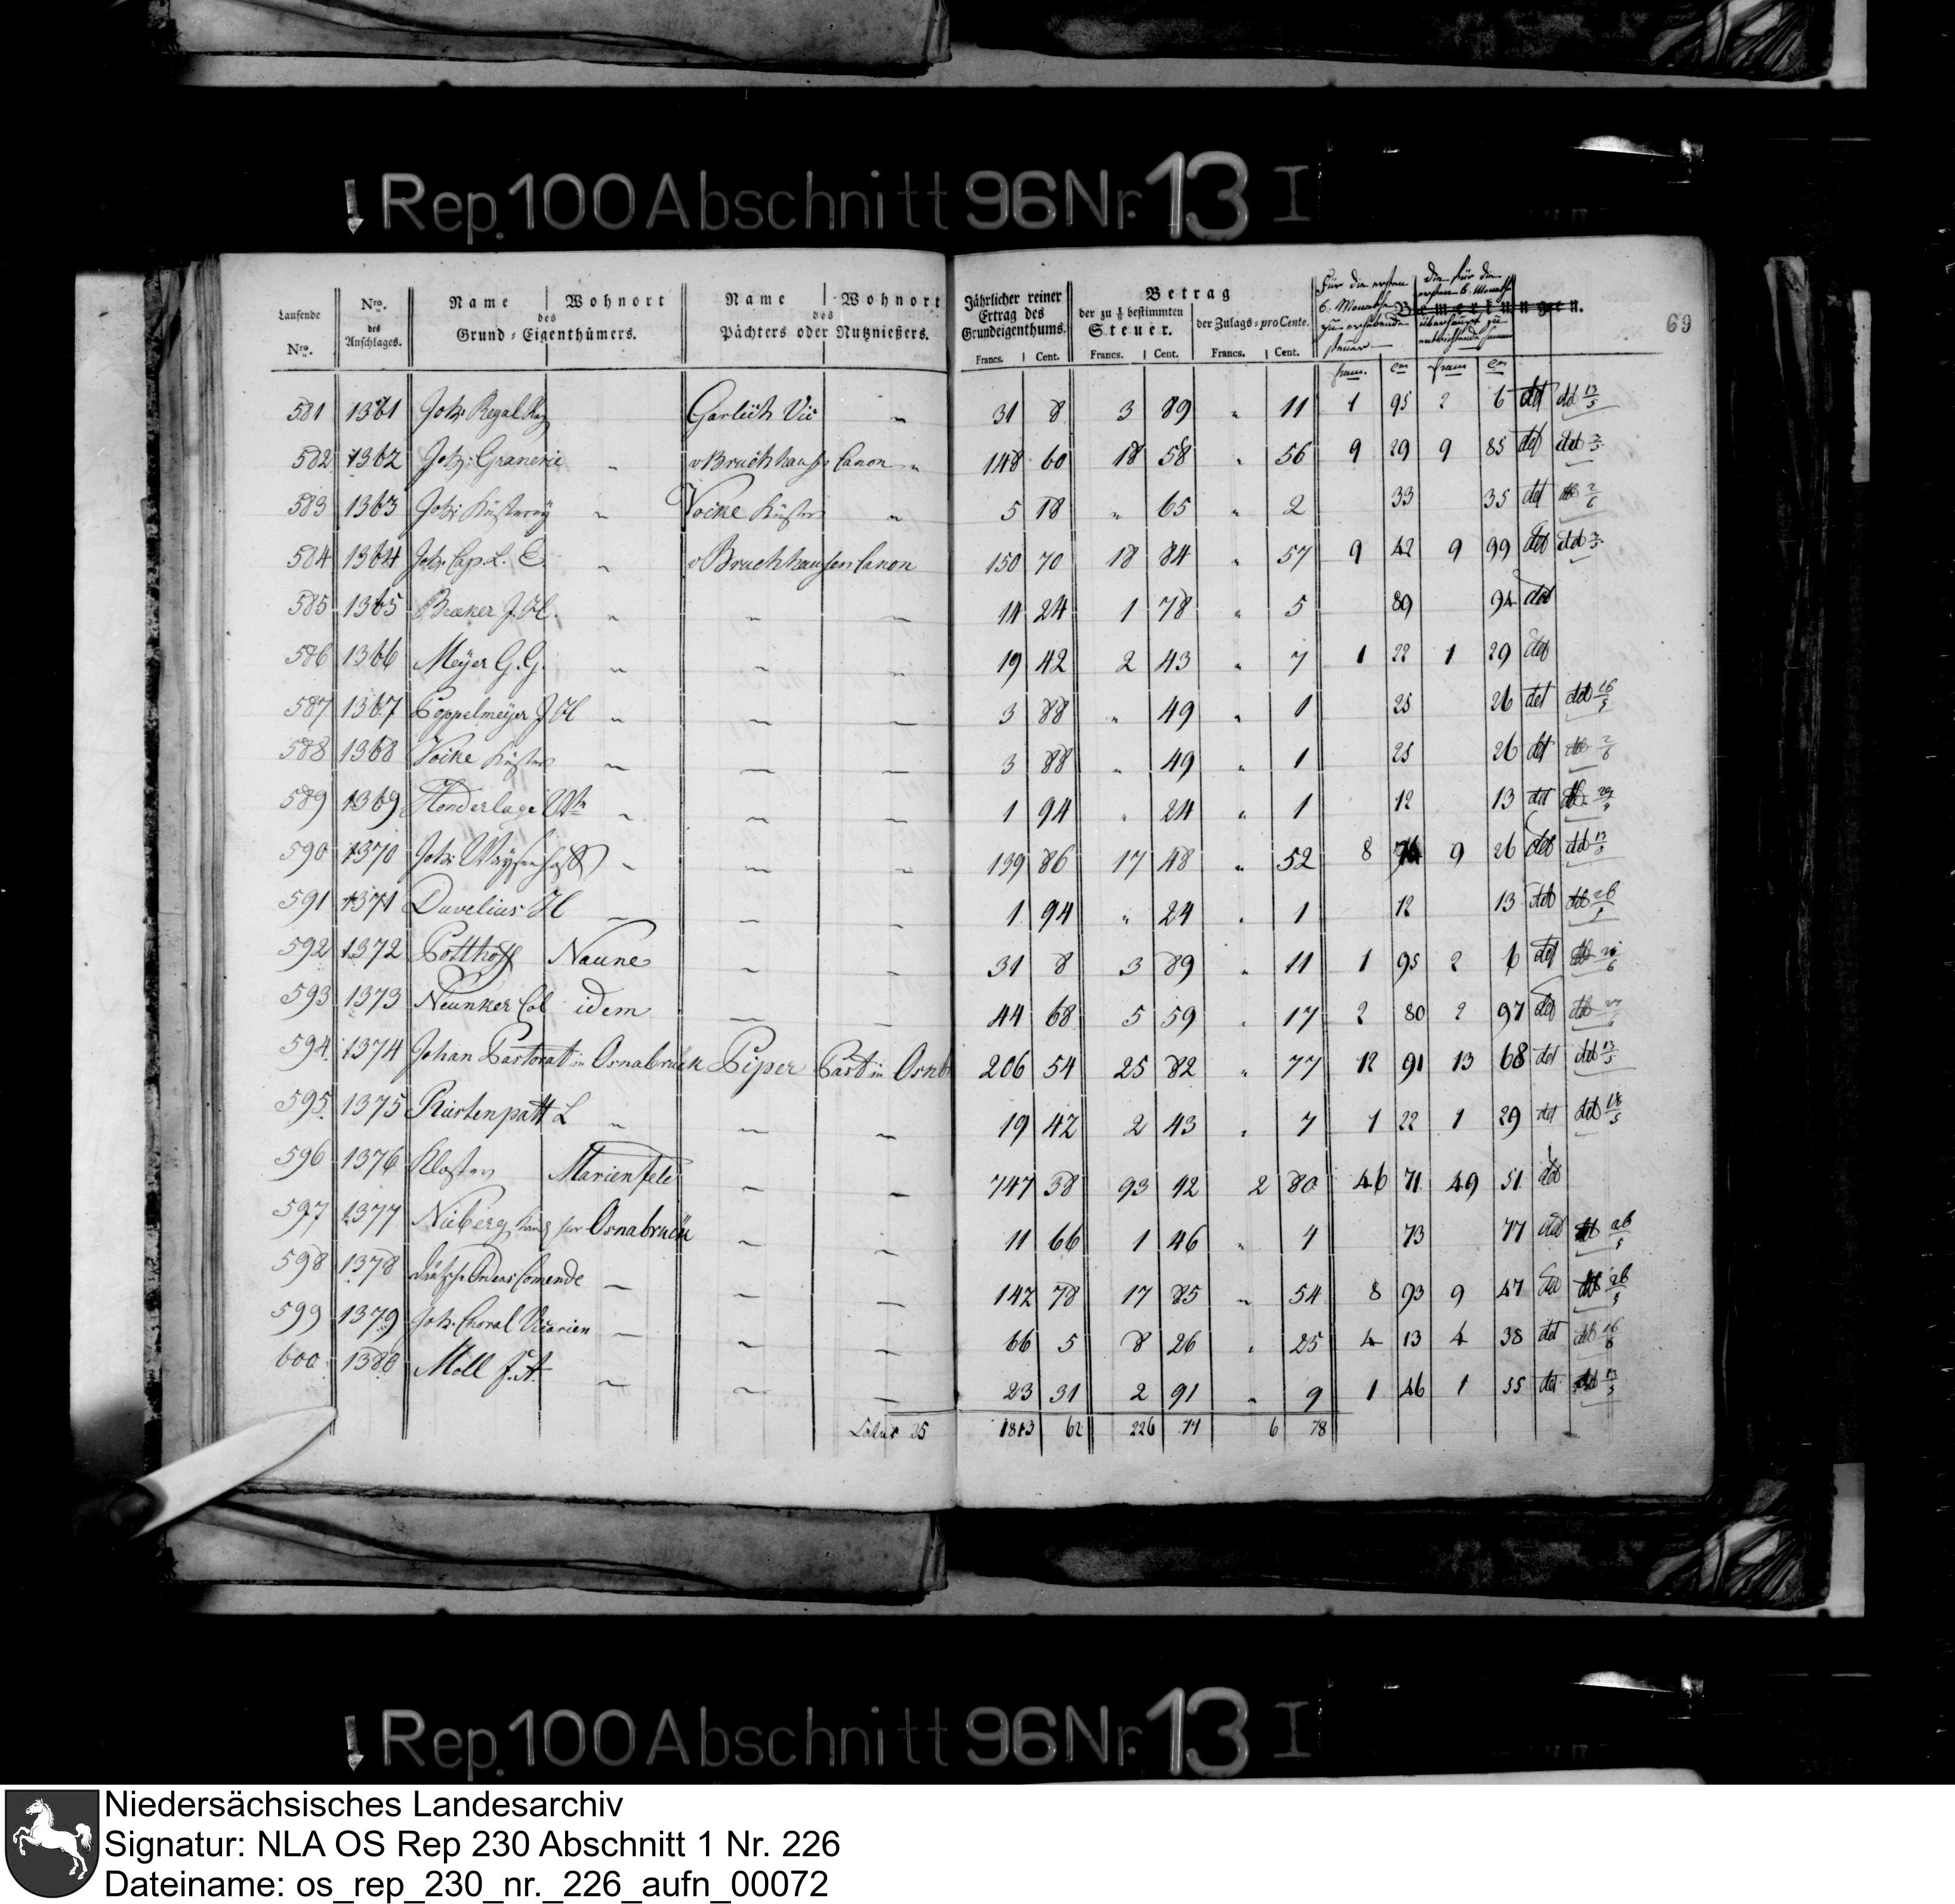 Rep. 100 Abschnitt 96 Nr. 13 I
69
Laufende Nro. | Nro. des Anschlages. | Name | Wohnort des Grund=Eigenthümers. | Name | Wohnort des Pächters oder Nutznießers. | Jährlicher reiner Ertrag des Grundeigenthums. Francs. Cent. | Betrag der zu bestimmten Steuer. Francs. Cent. | der Zulags=pro Cente. Francs. Cent. | Für die ersten 6. Monathe zu erhebende Steuer | Die für die ersten 6. Monathe überhaupt zu entrichtende Summe | Bemerkungen.
581 1361 Joh: Regal Garlich Vic " 31 8 3 89 " 11 1 95 2 6 det det 13/5
582 1362 Joh: Granerie " v Bruchhausen Canon " 148 60 18 58 " 56 9 29 9 85 det det
583 1363 Joh: Küsterey " Vocke Küster " 5 18 " 65 " 2 33 35 det 2/6
584 1364 Joh. Cap. L. C. " v Bruchhausen Canon 150 70 18 84 " 57 9 42 9 99 det det
585 1365 Broeker J. H. " " — 14 24 1 78 " 5 89 94 det
586 1366 Meÿer G. G. " — " 19 42 2 43 " 7 1 22 1 29 det
587 1367 Poppelmeÿer J H " — — 3 88 " 49 " 1 25 26 det det 16/5
588 1368 Vocke Küster — — — 3 88 " 49 " 1 25 26 det 2/6
589 1369 Honderlage Wwe " — — 1 94 " 24 " 1 12 13 det
590 1370 Joh: Waysenhaus " — " 139 86 17 48 " 52 8 74 9 26 det det 13/5
591 1371 Duvelius H — — " 1 94 " 24 " 1 12 13 det det 26/5
592 1372 Potthoff Naune — — 31 8 3 89 " 11 1 95 2 6 det
593 1373 Neunker Col idem — — 44 68 5 59 " 17 2 80 2 97 det
594 1374 Johan Pastorat in Osnabruck Piper Past in Osnb 206 54 25 82 " 77 12 91 13 68 det det 13/5
595 1375 Kürtenpatt L " — — 19 42 2 43 " 7 1 22 1 29 det det 18/5
596 1376 Kloster Marienfeld — — 747 38 93 42 2 80 46 71 49 51 det
597 1377 Niberg Osnabruck — — 11 66 1 46 " 4 73 77 det 26/5
598 1378 Deutsche Ordens Comende — — — 142 78 17 85 " 54 8 93 9 47 det 26/5
599 1379 Joh. Choral Vicarien — — — 66 5 8 26 " 25 4 13 4 38 det det 16/6
600 1380 Moll F. A. — — — 23 31 2 91 " 9 1 46 1 55 det det 13/5
Latus 25 1813 62 226 71 6 78
Rep. 100 Abschnitt 96 Nr. 13 I
Niedersächsisches Landesarchiv
Signatur: NLA OS Rep 230 Abschnitt 1 Nr. 226
Dateiname: os_rep_230_nr._226_aufn_00072